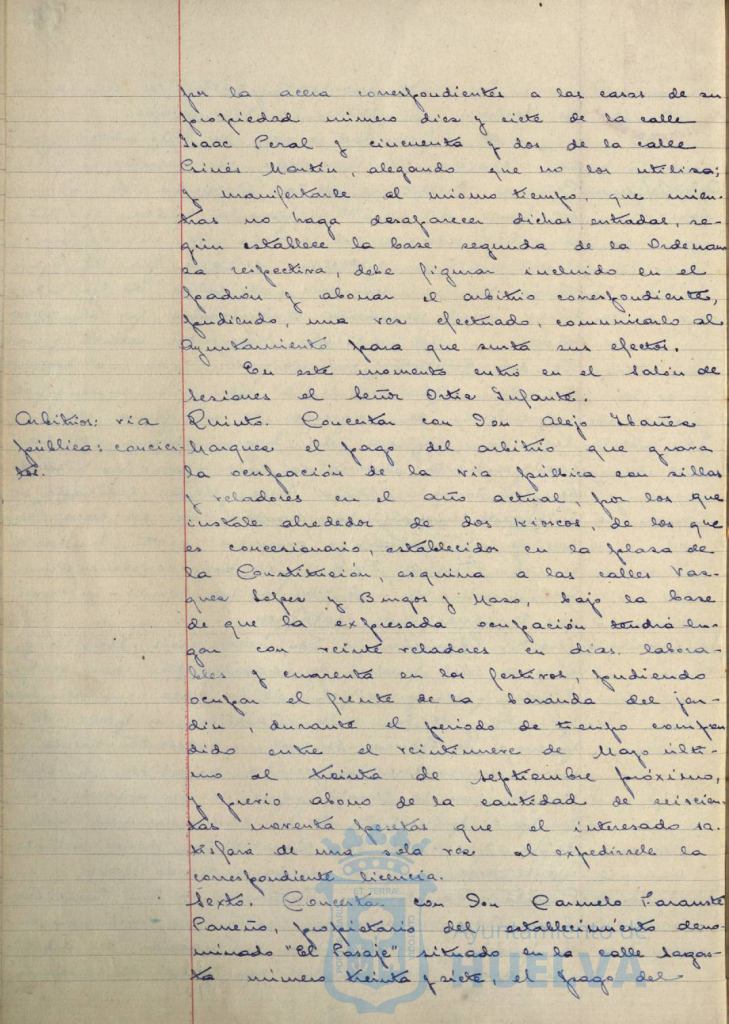 por la acera correspondientes a las casas de su
propiedad número diez y siete de la calle
Isaac Peral y cincuenta y dos de la calle
Ginés Martín, alegando que no los utiliza;
y manifestarle al mismo tiempo, que mien-
tras no haga desaparecer dichas entradas, se-
gún establece la base segunda de la Ordenan
za respectiva, debe figurar incluido en el
padrón y abonar el arbitrio correspondiente,
pudiendo, una vez efectuado, comunicarlo al
Ayuntamiento para que surta sus efectos.
En este momento entró en el Salón de
Sesiones el Señor Ortiz Infante.
Arbitrios: vía
pública: concier-
tos.
Quinto. Concertar con Don Alejo Ibañez
Marquez el pago del arbitrio que grava
la ocupación de la vía pública con sillas
y veladores en el año actual, por los que
instale alrededor de dos kioscos, de los que
es concesionario, establecidos en la plaza de
la Constitución, esquina a las calles Vaz-
quez Lopez y Burgos y Mazo, bajo la base
de que la expresada ocupación tendrá lu-
gar con veinte veladores en días labora-
bles y cuarenta en los festivos, pudiendo
ocupar el frente de la baranda del jar-
dín, durante el periodo de tiempo compren
dido entre el veintinueve de Mayo últi-
mo al treinta de septiembre próximo,
y previo abono de la cantidad de seiscien-
tas noventa pesetas que el interesado sa-
tisfará de una sola vez al expedírsele la
correspondiente licencia.
Sexto. Concertar con Don Carmelo
Pareño, propietario del establecimiento deno-
minado "El Pasaje" situado en la calle Sagas-
ta número treinta y siete, el pago del
Ayuntamiento de
HUELVA